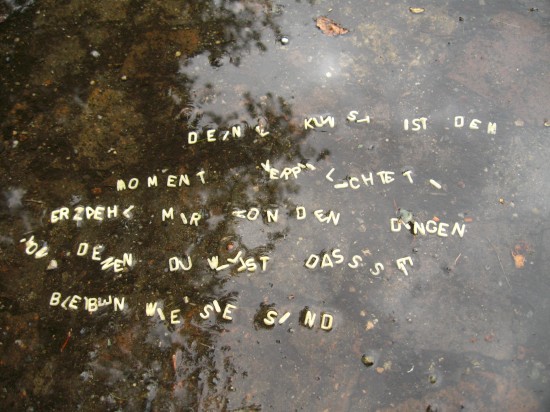 DEINE KUNST IST DEM
MOMENT VERPFLICHTET
ERZDEHL MIR VON DEN DINGEN
VON DENEN DU WILLST DASS SIE
BLEIBEN WIE SIE SIND